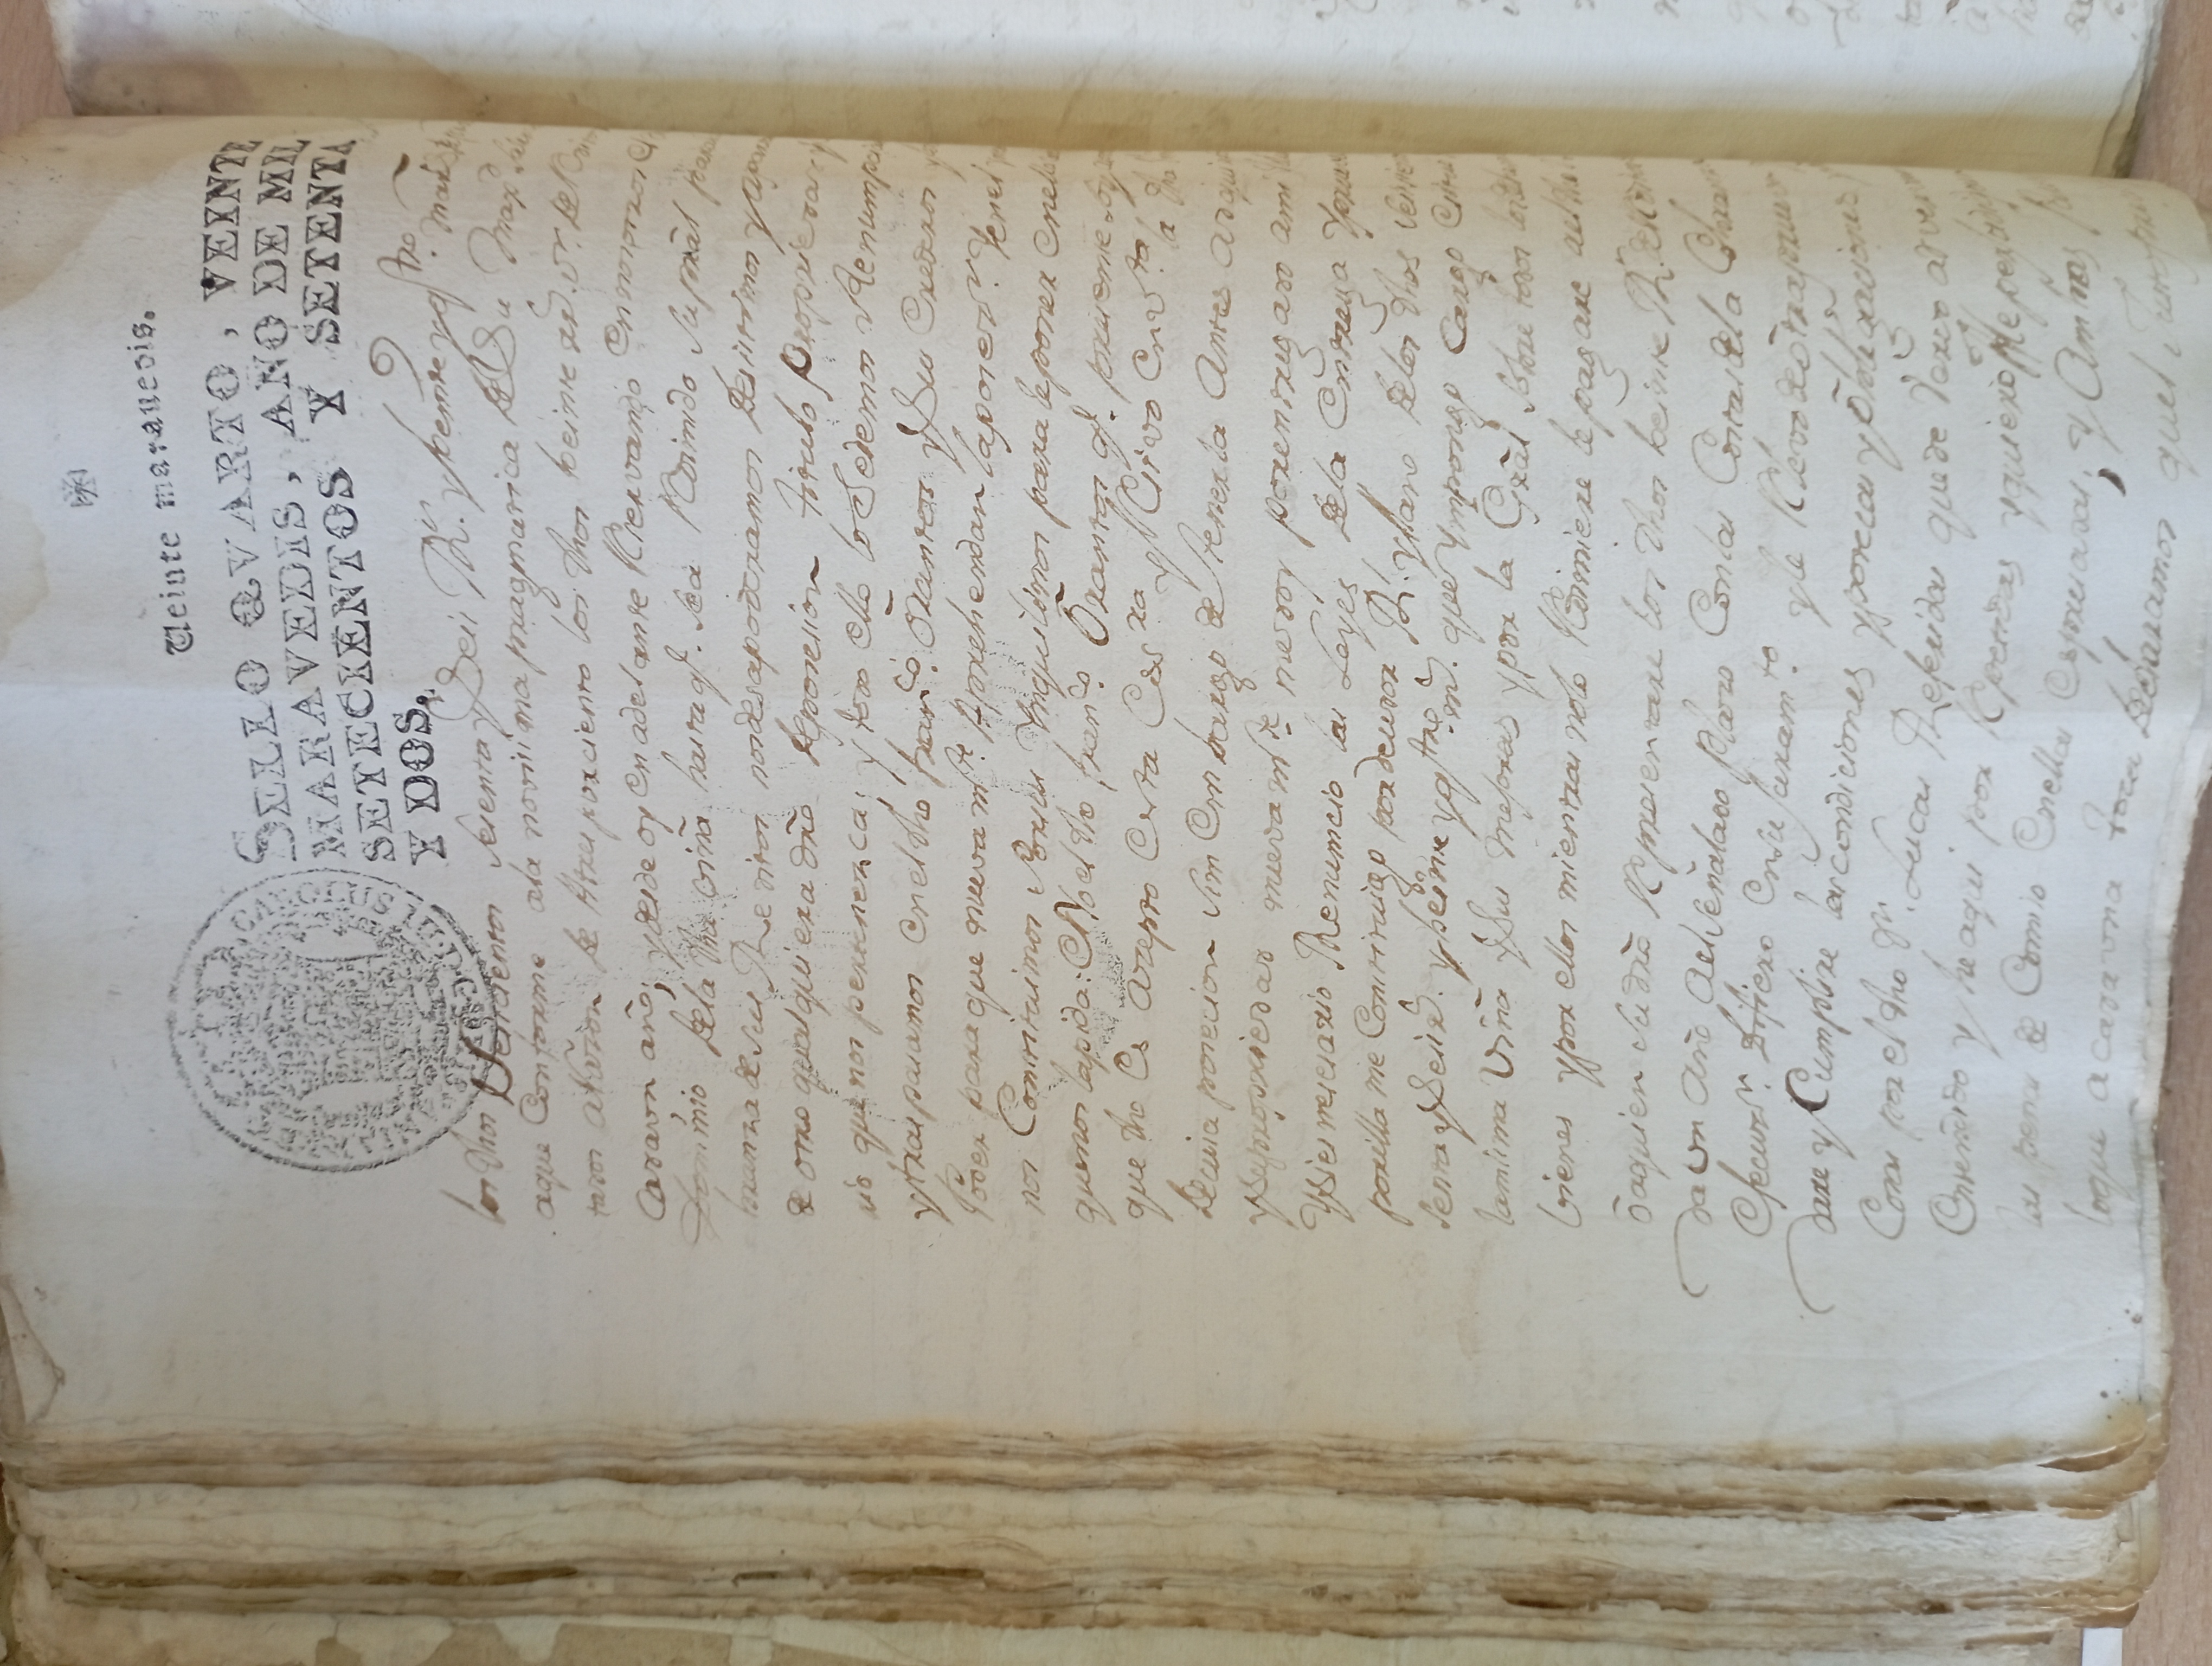 Veinte marauedis.
SELLO QVARTO, VEINTE
MARAVEDIS, AÑO DE MIL
SETECIENTOS Y SETENTA
Y DOS.
CAROLUS III D.G.
los dhos Seiscientos sesenta y Seis Rs. y beinte y qtro. mar
aque Conforme ala novisima pragmatica de Su Magd
tados a Razon de a tres por ciento los dhos beinte rrs. vn. de
Cada un año; y desde oy en adelante Reservando en nosotros el
Dominio de la dha viña hasta q. sea Redimido su pral para
branza de sus Reditos nos desapoderamos desistimos y apar
de otro qualquiera dro de posesion titulo propriedad y
rio que nos pertenezca; y todo ello lo Sedemos Renump
y traspasamos en el dho franco. Orantos y Sus Erederos y
Poder para que nueva mte. Aprehendan la posesn. Y en el
nos Constituimos Por sus Ynquilinos para le poner en ella
que nos la pida: E Yo el dho franco. Orantos q. presente soy
que dho Es Azepto Esta Essra y Resivo en vta la dha
de cuia posecion sin embargo de tenerla Antes adqui
y Su propriedad nueva mte. me doy por entregado a mi
Y si es nesesario Renumcio las Leyes de la Entrega Y prue
por ella me Constituigo por deudor Rl. y llano de los dhos seiscien
senta y Seis rs. y beinte y qtro ms. que Ympongo Cargo Situo
la misma Viña y Sus mejoras y por la Gral Sobre todos los
bienes y por ellos mientras no lo Redimiere le pagare al dho
o a quien su dro Representare los dhos beinte Rs. de Redi
da un Año al señalado Plazo Con las Costas de la Cobranza
Esecuzn. Difiero en su juramto. y le Relevo de otra prueva
dare y Cumplire las condiciones y potecas y obligaciones
Coras por el dho Dn. Lucas Referidas que de Verbo ad ver
Entendido y he aqui por Repetidas y quiero Me per
las penas de Comiso En ellas Espresadas; y Ambas
lo que a cada una toca Declaramos que el Justo pre